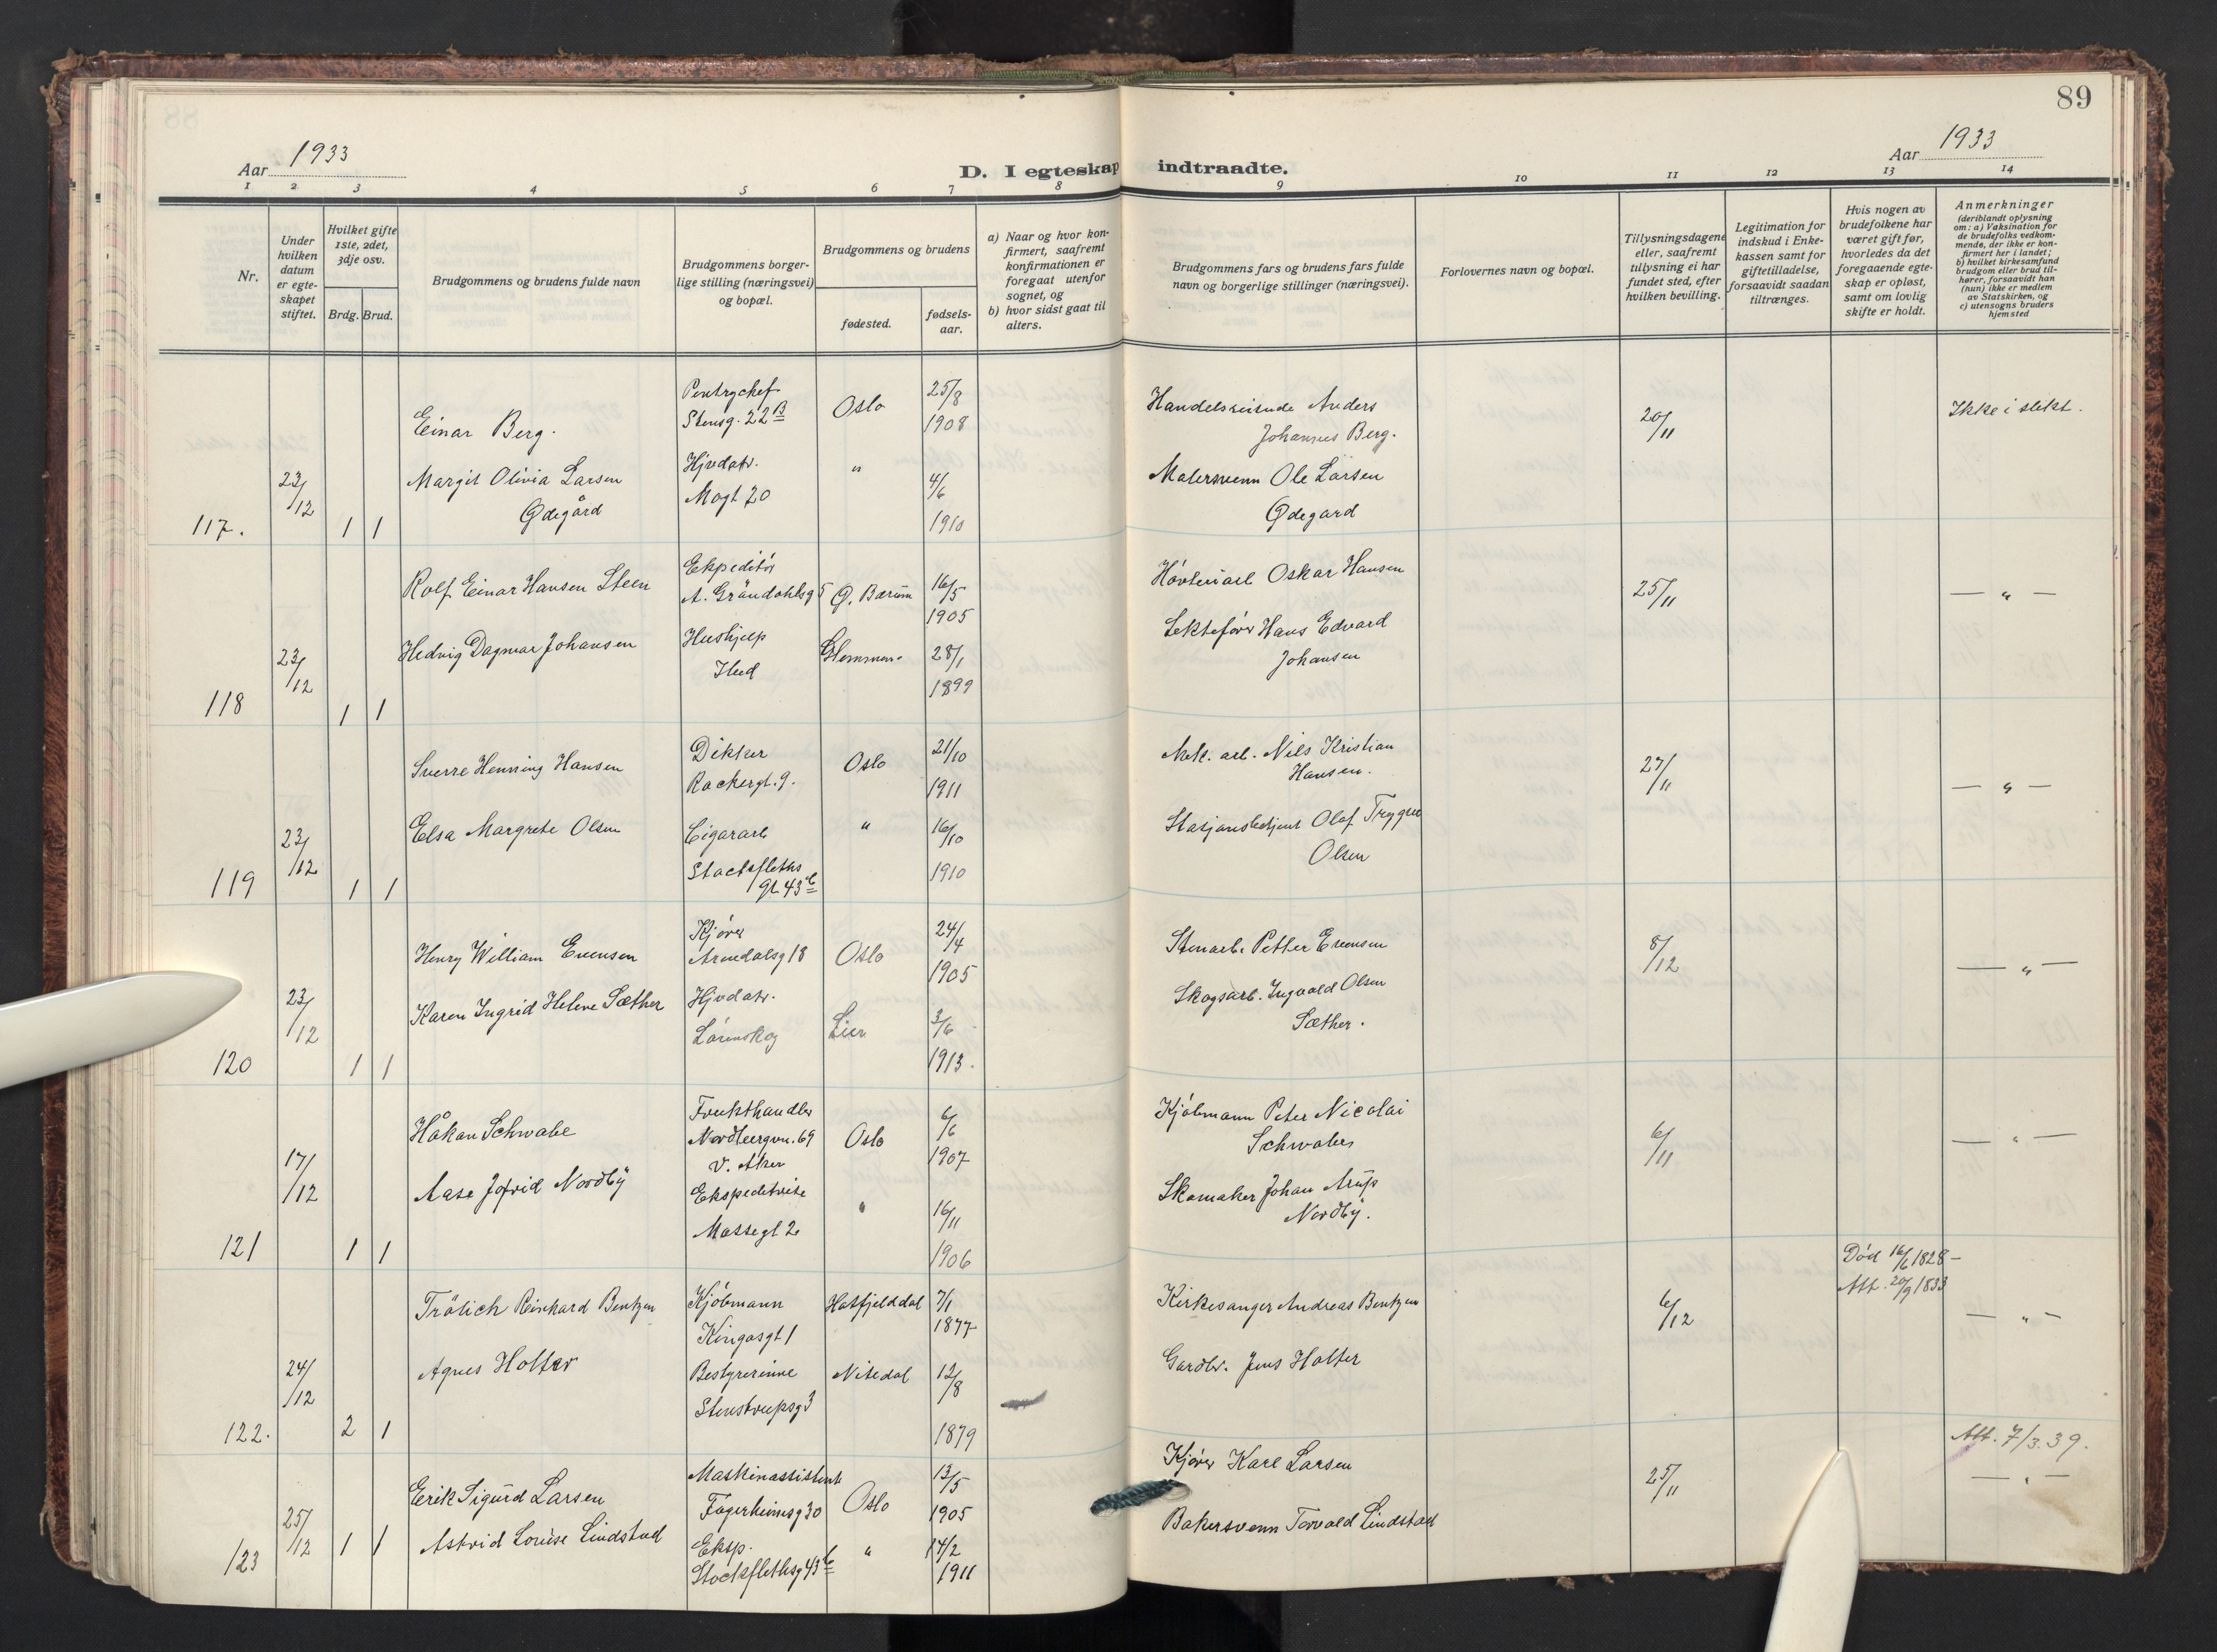 89
Aar 1933
D. I egteskap indtraadte.
Aar 1933
1 2 3 4 5 6 7 8 9 10 11 12 13 14
Nr.
Under hvilken datum er egteskapet stiftet.
Hvilket gifte 1ste, 2det, 3dje osv.
Brdg. Brud.
Brudgommens og brudens fulde navn
Brudgommens borgerlige stilling (næringsvei) og bopæl.
Brudgommens og brudens
fødested.
fødselsaar.
a) Naar og hvor konfirmert, saafremt konfirmationen er foregaat utenfor sognet, og
b) hvor sidst gaat til alters.
Brudgommens fars og brudens fars fulde navn og borgerlige stillinger (næringsvei).
Forlovernes navn og bopæl.
Tillysningsdagene eller, saafremt tillysning ei har fundet sted, efter hvilken bevilling.
Legitimation for indskud i Enkekassen samt for giftetilladelse, forsaavidt saadan tiltrænges.
Hvis nogen av brudefolkene har været gift før, hvorledes da det foregaaende egteskap er opløst, samt om lovlig skifte er holdt.
Anmerkninger
(deriblandt oplysning om: a) Vaksination for de brudefolks vedkommende, der ikke er konfirmert her i landet;
b) hvilket kirkesamfund brudgom eller brud tilhører, forsaavidt han (hun) ikke er medlem av Statskirken, og
c) utensogns bruders hjemsted
117. 23/12 1 1
Einar Berg. Pentrychef Stensg. 22 B Oslo 25/8 1908 Handelsreisende Anders Johannes Berg. 20/11 Ikke i slekt.
Margit Olivia Larsen Ødegård Hjvdatr. Mogt 20 " 4/6 1910 Malersvenn Ole Larsen Ødegard
118 23/12 1 1
Rolf Einar Hansen Steen Ekpeditør A. Gröndahlsg 5 Ø. Bærum 16/5 1905 Oskar Hansen 25/11 — " —
Hedvig Dagmar Johansen Hushjelp Glemmen 28/1 1899 Lektefører Hans Edvard Johansen
119 23/12 1 1
Sverre Henning Hansen Dikker Rackergt. 9. Oslo 21/10 1911 Mek. arb. Nils Kristian Hansen. 27/11 — " —
Elsa Margrete Olsen Cigararb Stockfleths gt 43 b " 16/10 1910 Stasjonsbetjent Olaf Trygve Olsen
120 23/12 1 1
Henry William Evensen Kjører Arendalsg 18 Oslo 24/4 1905 Stenarb. Petter Evensen 8/12 — " —
Karen Ingrid Helene Sæther Hjvdatr. Lørenskog Lier 3/6 1913. Skogsarb. Ingvald Olsen Sæther.
121 17/12 1 1
Håkan Schwabe Frukthandler Nordbergvn. 69 V. Aker Oslo 6/6 1907 Kjøbmann Peter Nicolai Schwabe 6/11 — " —
Aase Jofrid Nordby Ekspeditrise Massegt 2 " 16/11 1906 Skomaker Johan Nordby.
122. 24/12 2 1
Trölich Reinhard Bentzen Kjöbmann Kingosgt 1 Hatfjelddal 7/1 1877 Kirkesanger Andreas Bentzen 6/12 Død 16/6 1828 — Att. 20/9 1833 — " —
Agnes Holter Bestyrerinne Stenstrupsg 3 Nitedal 12/8 1879 Gardbr. Jens Holter
123 25/12 1 1
Erik Sigurd Larsen Maskinassistent Fagerheimsg 30 Oslo 13/5 1905 Kjører Karl Larsen 25/11 Att. 7/3.39. — " —
Astrid Louise Lindstad Eksp. Stockflethsg 43 b " 14/2 1911 Bakersvenn Torvald Lindstad